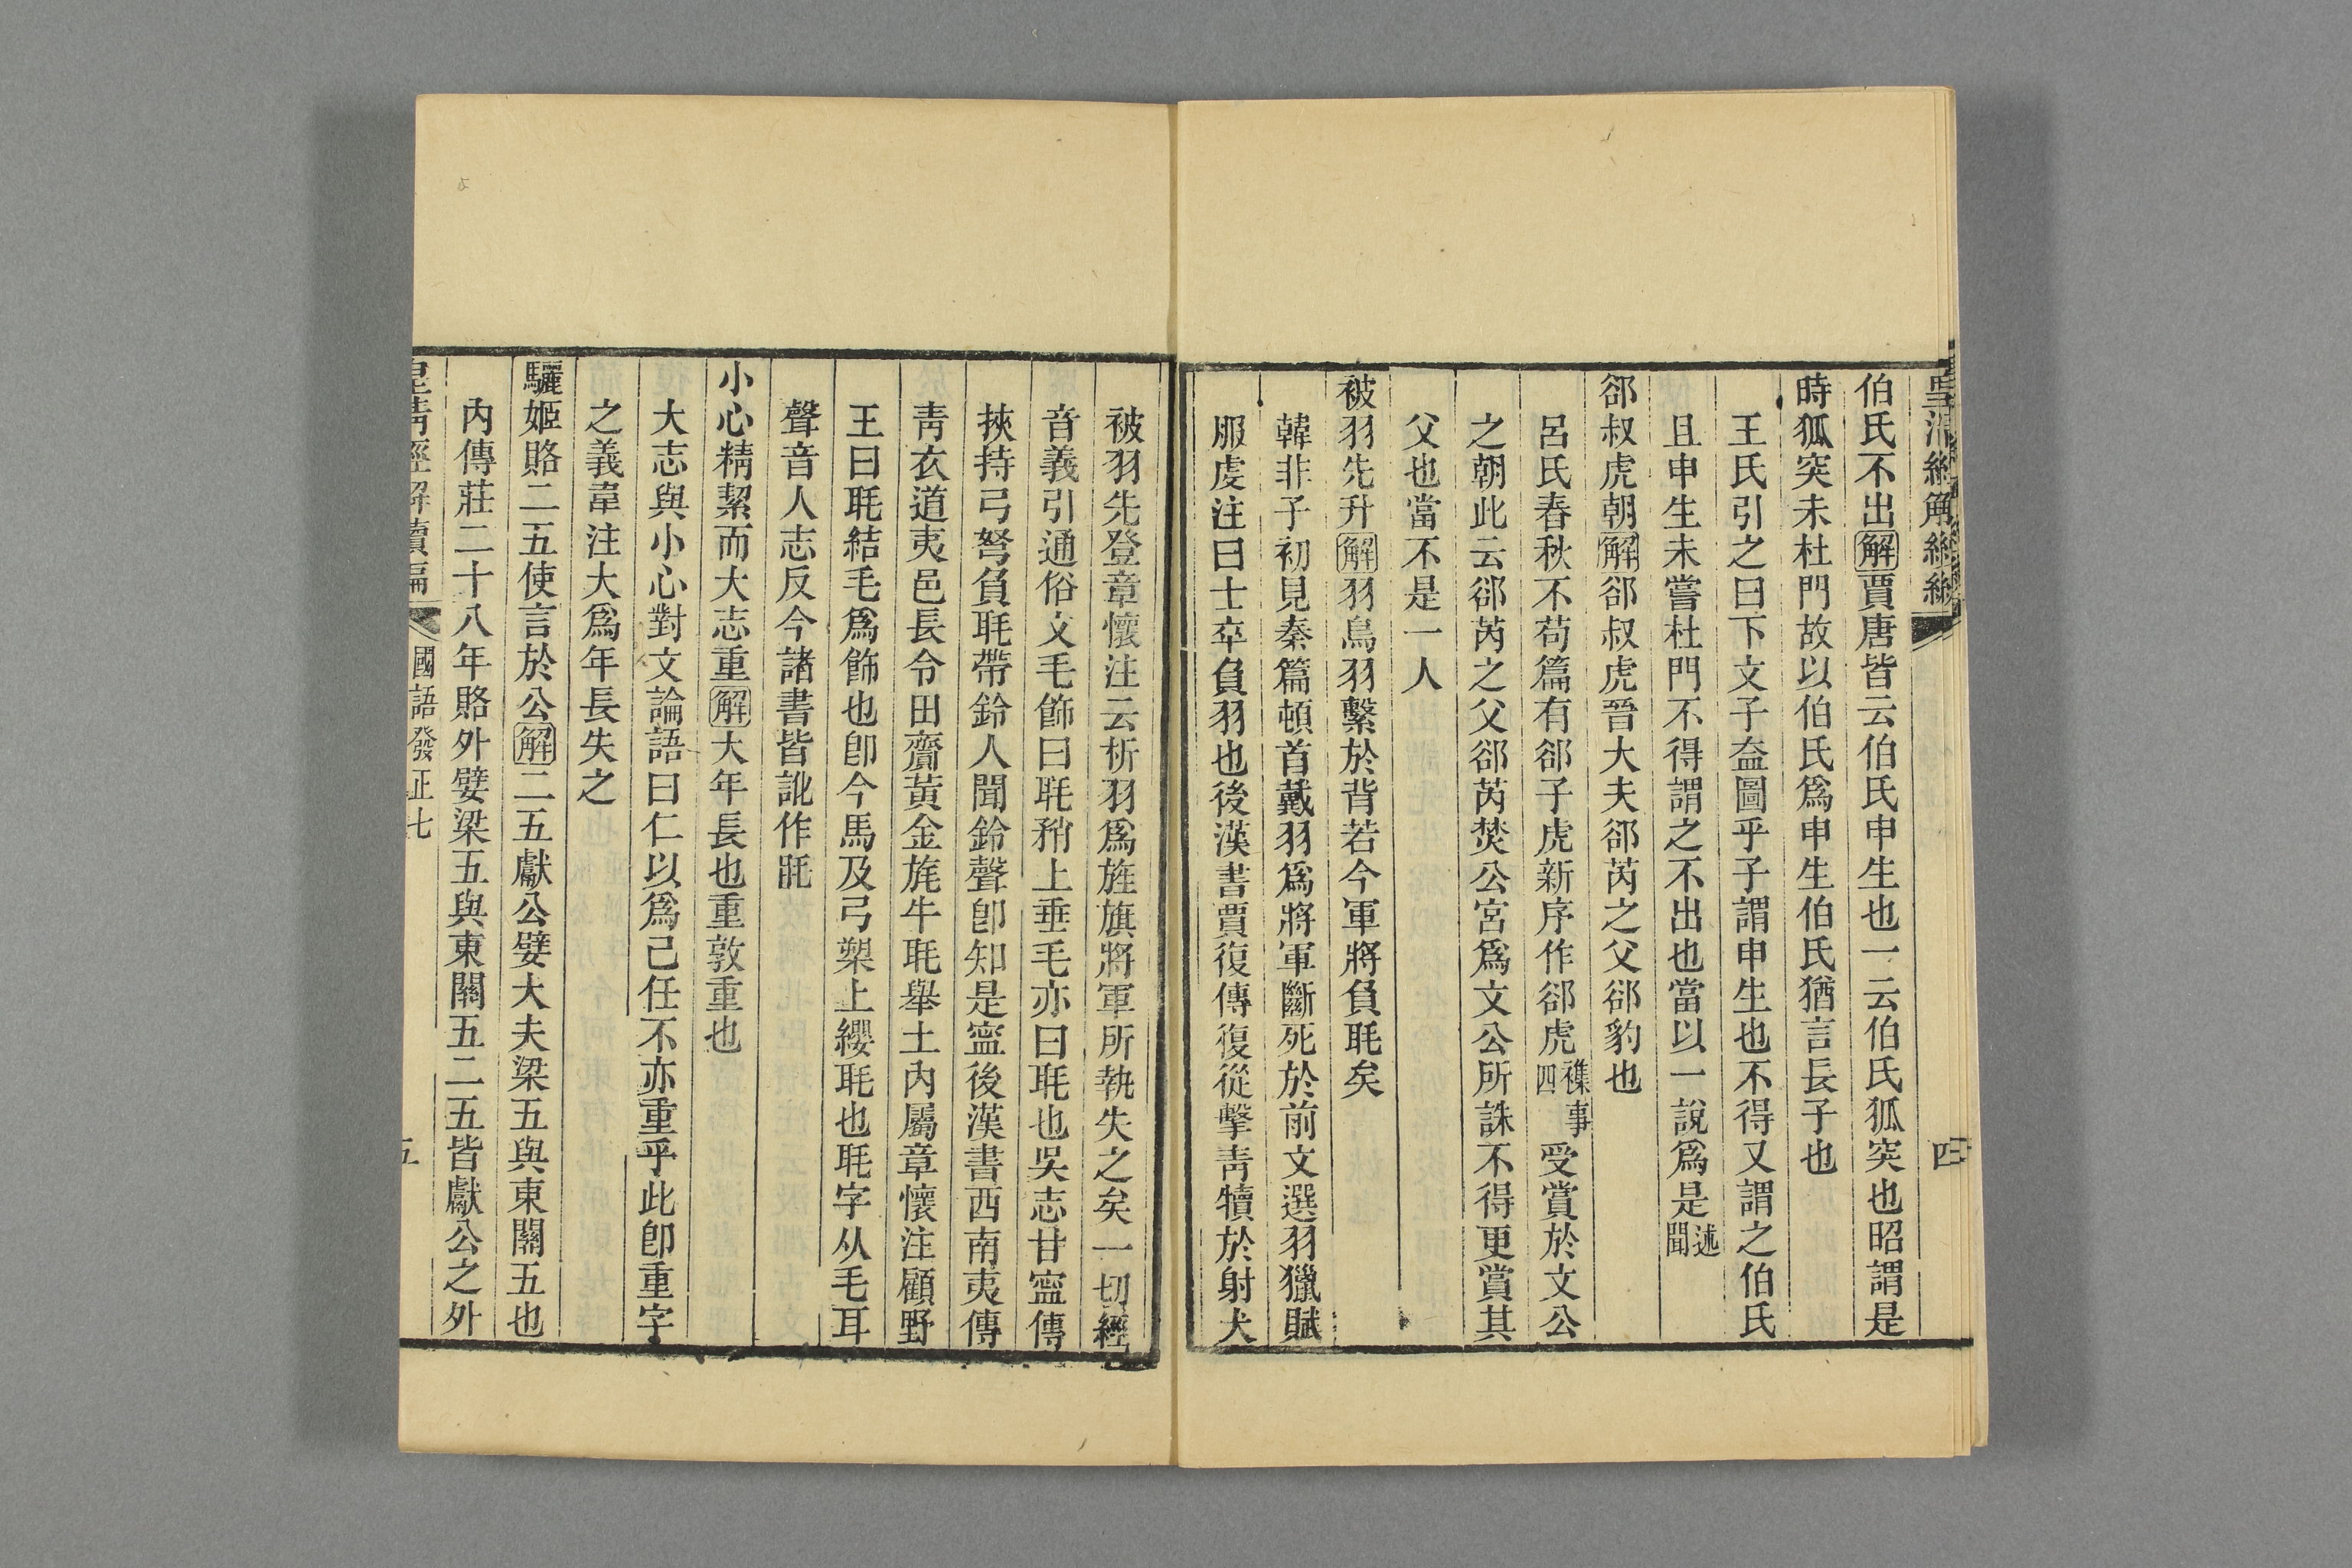 伯氏不出解賈唐皆云伯氏申生也一云伯氏狐突也昭謂是
時狐突未杜門故以伯氏爲申生伯氏猶言長子也
王氏引之曰下文子盍圖乎子謂申生也不得又謂之伯氏
且申生未嘗杜門不得謂之不出也當以一說爲是述聞
郤叔虎朝解郤叔虎晉大夫郤芮之父郤豹也
呂氏春秋不苟篇有郤子虎新序作郤虎襍事四受賞於文公
之朝此云郤芮之父郤芮焚公宮爲文公所誅不得更賞其
父也當不是一人
被羽先升解羽鳥羽繫於背若今軍將負毦矣
韓非子初見秦篇頓首戴羽爲將軍斷死於前文選羽獵賦
服虔注曰士卒負羽也後漢書賈復傳復從擊靑犢於射犬
被羽先登章懷注云析羽爲旌旗將軍所執失之矣一切經
音義引通俗文毛飾曰毦矟上垂毛亦曰毦也吳志甘寍傳
挾持弓弩負毦帶鈴人聞鈴聲卽知是寍後漢書西南夷傳
靑衣道夷邑長令田齎黃金旄牛毦舉土內屬章懷注顧野
王曰毦結毛爲飾也卽今馬及弓槊上纓毦也毦字从毛耳
聲音人志反今諸書皆訛作毦
小心精絜而大志重解大年長也重敦重也
大志與小心對文論語曰仁以爲己任不亦重乎此卽重字
之義韋注大爲年長失之
驪姬賂二五使言於公解二五獻公嬖大夫梁五與東關五也
內傳莊二十八年賂外嬖梁五與東關五二五皆獻公之外
國語發正七
五